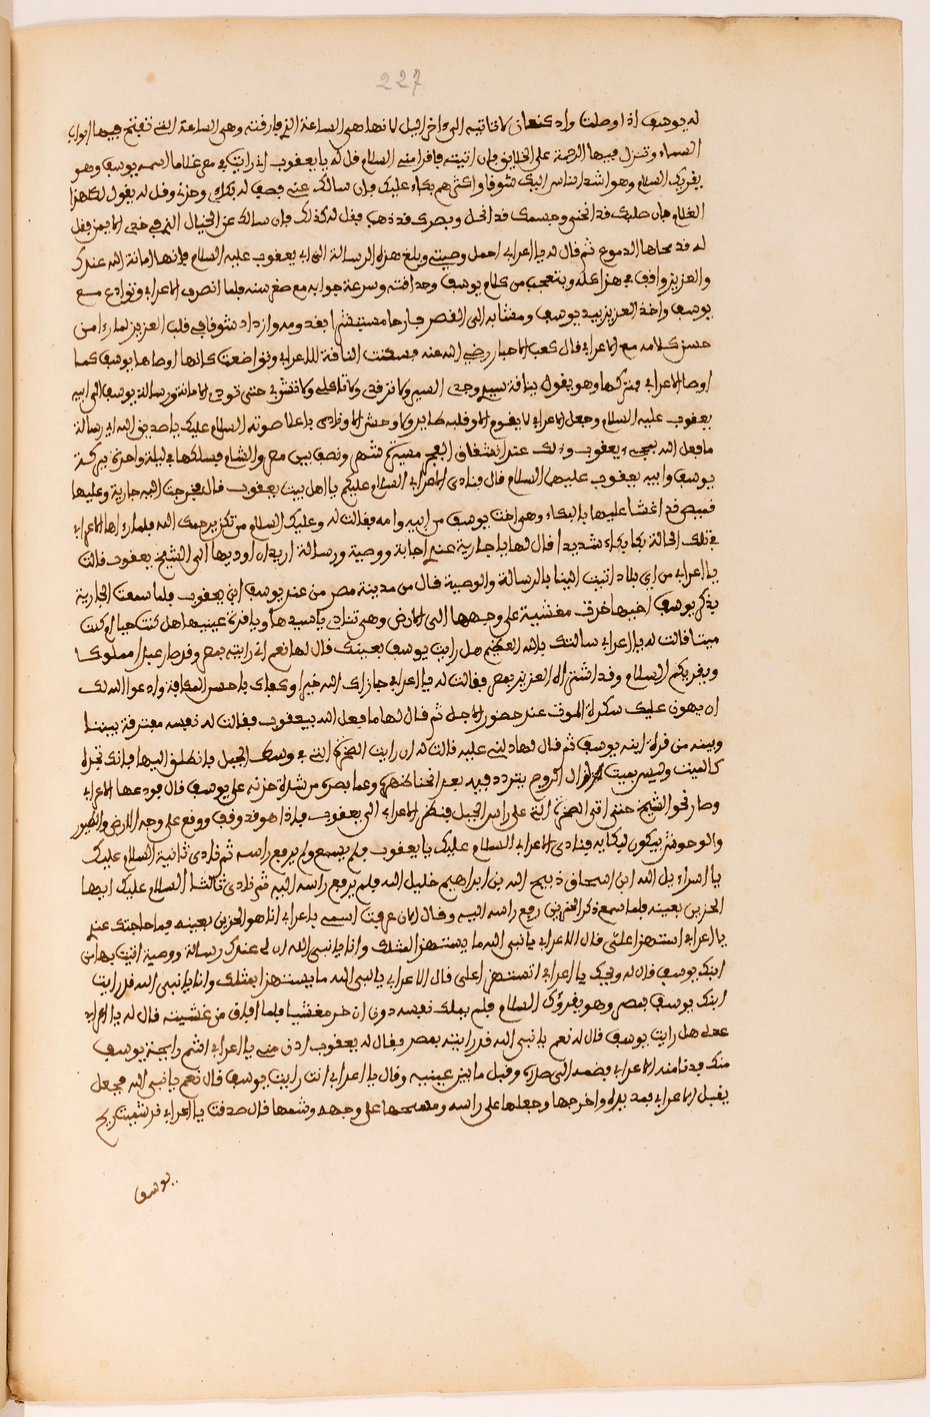 227
له يوسف اذا وصلت واد كنعان لا تاتيه الى اخر اليل لانها هي الساعة التي فارقته وهي الساعة التي تفتح فيها ابواب
السماء وتنزل فيها الرحمة على الخلايق فان اتيته فاقرا مني السلام قل له يا يعقوب اني رايت في مصر غلاما اسمه يوسف وهو
يقريك السلام وهو اشد الناس اليك شوقا واكثرهم بكاء عليك فان سالك عني فصف له بكاي وحزني وقل له يقول لك هذا
الغلام فان صلبك قد انحنى وجسمك قد انحل وبصرك قد ذهب فقل له كذلك فان سالك عن الخيال الذي في خدي الايمن فقل
له قد محاها الدموع ثم قال له يا اعرابي احمل وصيتي وبلغ هذه الرسالة الى ابي يعقوب عليه السلام فانها امانة الله عندك
والعزيز واقف في هذا كله ويتعجب من كلام يوسف وحداقته وسرعة جوابه مع صغر سنه فلما انصرف الاعرابي وتوادع مع
يوسف واخذ العزيز بيد يوسف ومشا به الى القصر فارحا مستبشرا بقدومه وازداد شوقا في قلب العزيز لما راى من
حسن كلامه مع الاعرابي قال كعب الاحبار رضي الله عنه فسكنت الناقة للاعرابي وتواضعت كانها اوصاها يوسف كما
اوصا الاعرابي فركبها وهو يقول يا ناقة سيري وجدي السير ولا ترقدي ولا تاكلي ولا تشربي حتى تودي الامانة ورسالة يوسف الى ابيه
يعقوب عليه السلام وجعل الاعرابي لا يقوم الا وقلبه طاير ولا وحش الا ونادى باعلا صوته السلام عليك يا صديق الله اي رسالة
ما فعل الله بنبيه يعقوب وذلك عند انشقاق الفجر مسيرة شهر ونصف بين مصر والشام فسلكها في ليلة واحدة ببركة
يوسف وابيه يعقوب عليهما السلام قال فنادى الاعرابي السلام عليكم يا اهل بيت يعقوب قال فخرجت اليه جارية وعليها
قميص قد اغشا عليها بالبكاء وهي اخت يوسف من ابيه وامه فقالت له وعليك السلام من تكن يرحمك الله فلما راها الاعرابي
في تلك الحالة بكا بكاء شديدا قال لها يا جارية عندي اجابة ووصية ورسالة اريد ان اوديها الى الشيخ يعقوب قالت
يا اعرابي من اي بلاد اتيت الينا بالرسالة والوصية قال من مدينة مصر من عند يوسف ابن يعقوب فلما سمعت الجارية
بذكر يوسف اخيها خرت مغشية على وجهها الى الارض وهي تنادي يا سيدها ويا قرة عينيها هل كنت حيا ام كنت
ميتا قالت له يا اعرابي سالتك بالله العظيم هل رايت يوسف بعينك قال لها نعم اني رايته بمصر وقد صار عبدا مملوكا
ويقريكم السلام وقد اشتراه العزيز بمصر فقالت له يا اعرابي جازاك الله خيرا وكفاك باحسن المكافاة وادعوا الله لك
ان يهون عليك سكرة الموت عند حضور الاجل ثم قال لها ما فعل الله بيعقوب فقالت له نفسه مفترقة بيننا
وبينه من فراق ابنه يوسف ثم قال لها دليني عليه قالت له ان رايت الصخرة التي في وسط الجبل فانطلق اليها فانك تجده
كالميت وليس بميت الا ان الروح يتردد فيه بعد انحناء ظهره وعما بصره من شدة حزنه على يوسف قال فودعها الاعرابي
وصار نحو الشيخ حتى اتى الصخرة التي على راس الجبل فنظر الاعرابي الى يعقوب فاذا هو قد وقف ووقع على وجه الارض والطيور
والوحوش يبكون لبكايه فنادى الاعرابي السلام عليك يا يعقوب فلم يسمع ولم يرفع راسه ثم نادى ثانية السلام عليك
يا اسراءيل الله ابن اسحاق ذبيح الله بن ابراهيم خليل الله فلم يرفع راسه اليه ثم نادى ثالثا السلام عليك ايها
الحزين بعينه فلما سمع ذكر الحزين رفع راسه اليه وقال الان عرفت اسمي يا اعرابي انا هو الحزين بعينه فما حاجتك عندي
يا اعرابي استهزا علي قال الاعرابي يا نبي الله ما يستهزا بمثلك وانا يا نبي الله ان لي عندك رسالة ووصية اتيت بها من
ابنك يوسف قال له ويحك يا اعرابي اتستهزا علي قال الاعرابي يا نبي الله ما يستهزا بمثلك وانا يا نبي الله قد رايت
ابنك يوسف بمصر وهو يقرؤك السلام فلم يملك نفسه دون ان خر مغشيا فلما افاق من غشيته قال له يا اعرابي
عملي هل رايت يوسف قال له نعم يا نبي الله قد رايته بمصر فقال له يعقوب ادن مني يا اعرابي اشم رايحة يوسف
منك فدنا منه الاعرابي فضمه الى صدره وقبل ما بين عينيه وقال يا اعرابي انت رايت يوسف قال نعم يا نبي الله فجعل
يقبل الاعرابي فمد يده واخرجها وجعلها على راسه ومسحها على وجهه وشمها قال صدقت يا اعرابي قد شممت ريح
يوسف